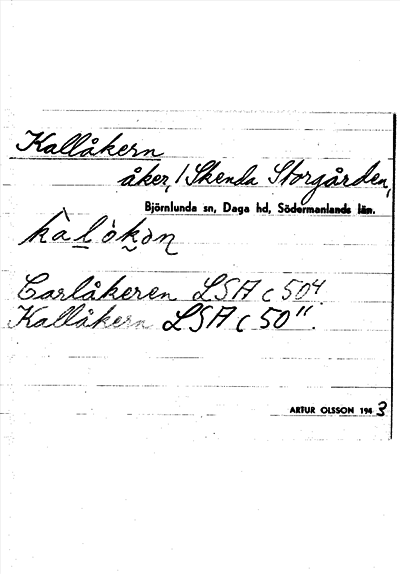 Kallåkern
åker, 1 Skenda Storgården,
Björnlunda sn, Daga hd, Södermanlands län.
Carlåkeren LSA C 50⁴.
Kallåkern LSA C 50¹¹.
ARTUR OLSSON 1943